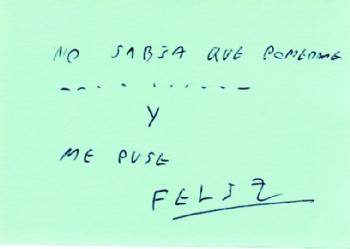 NO SABIA QUE PONERME
Y
ME PUSE
FELIZ